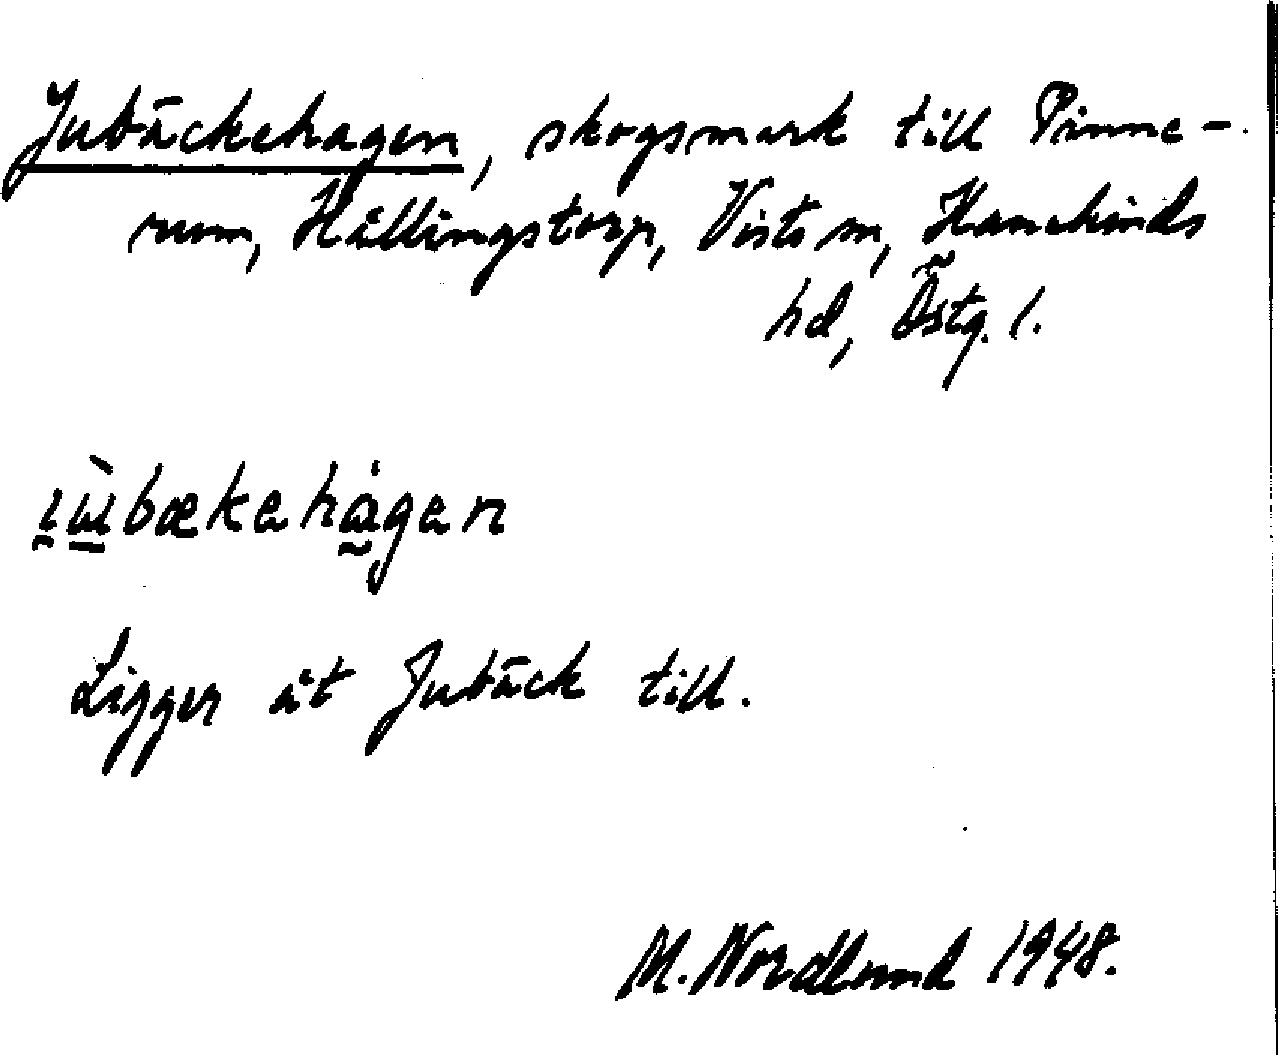 Jubäckehagen, skogsmark till Pinne-
rum, Hällingstorp, Vists sn, Hanekinds
hd, Östg. l.
Ligger åt Jubäck till.
M. Nordlund 1948.